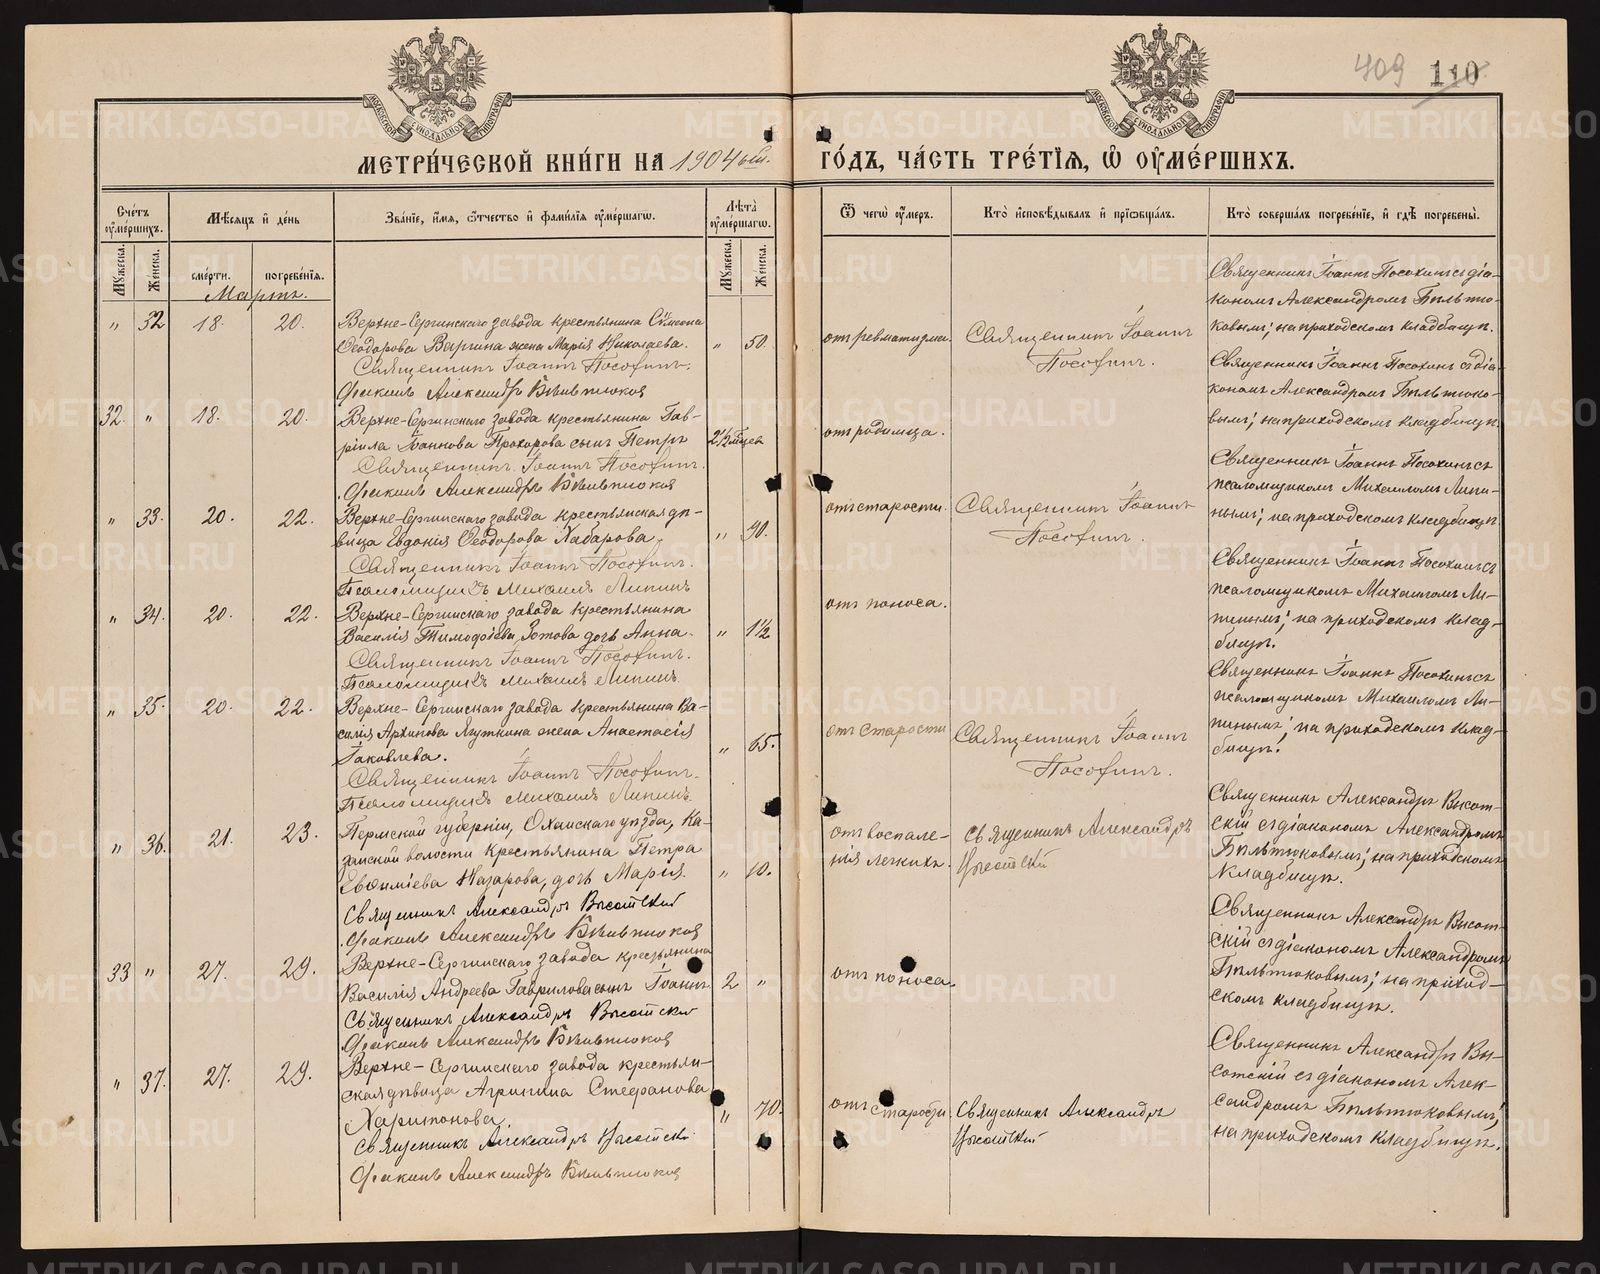 409 110
МЕТРИЧЕСКОЙ КНИГИ НА 1904ый ГОДЪ, ЧАСТЬ ТРЕТІЯ, Ѡ ОУМЕРШИХЪ.
Счетъ оумершихъ.
Мужеска.
Женска.
Мѣсяцъ и день
смерти.
погребенія.
Званіе, имя, отчество и фамилія оумершагѡ.
Лѣта оумершагѡ.
Мужеска.
Женска.
Ѿ чегѡ оумеръ.
Кто исповѣдывалъ и пріобщалъ.
Кто совершалъ погребеніе, и гдѣ погребены.
Мартъ.
" 32 18. 20.
Верхне-Сергинскаго завода крестьянина Сѵмеона
Ѳеодорова Варгина жена Марія Николаева.
Священникъ Іоаннъ Посохинъ.
Діаконъ Александръ Бѣльтюков
" 50.
отъ ревматизма
Священникъ Іоаннъ
Посохинъ.
Священникъ Іоаннъ Посохинъ съ діа-
кономъ Александромъ Бѣльтю-
ковымъ; на приходскомъ кладбищѣ.
32. " 18. 20.
Верхне-Сергинскаго завода крестьянина Гав-
ріила Іоаннова Прохорова сынъ Петръ
Священникъ Іоаннъ Посохинъ.
Діаконъ Александръ Бѣльтюков
2½ мѣсяц
отъ родимца.
Священникъ Іоаннъ Посохинъ съ діа-
кономъ Александромъ Бѣльтюко-
вымъ; на приходскомъ кладбищѣ.
" 33. 20. 22.
Верхне-Сергинскаго завода крестьянская дѣ-
вица Евдокія Ѳеодорова Хабарова.
Священникъ Іоаннъ Посохинъ.
Псаломщикъ Михаилъ Липинъ
" 90.
отъ старости.
Священникъ Іоаннъ
Посохинъ.
Священникъ Іоаннъ Посохинъ съ
псаломщикомъ Михаиломъ Липи-
нымъ; на приходскомъ кладбищѣ.
" 34. 20. 22.
Верхне-Сергинскаго завода крестьянина
Василія Тимоѳеева Зотова дочь Анна.
Священникъ Іоаннъ Посохинъ.
Псаломщикъ Михаилъ Липинъ
" 1½
отъ поноса.
Священникъ Іоаннъ Посохинъ съ
псаломщикомъ Михаиломъ Ли-
пинымъ; на приходскомъ клад-
бищѣ.
" 35. 20. 22.
Верхне-Сергинскаго завода крестьянина Ва-
силія Архипова Ягуткина жена Анастасія
Іаковлева.
Священникъ Іоаннъ Посохинъ.
Псаломщикъ Михаилъ Липинъ.
" 65.
отъ старости
Священникъ Іоаннъ
Посохинъ.
Священникъ Іоаннъ Посохинъ съ
псаломщикомъ Михаиломъ Ли-
пинымъ; на приходскомъ клад-
бищѣ.
" 36. 21. 23.
Пермской губерніи, Оханскаго уѣзда, Ка-
занской волости крестьянина Петра
Евѳиміева Назарова, дочь Марія.
Священникъ Александръ Высотскій
Діаконъ Александръ Бѣльтюков
" 10.
отъ воспале-
нія легкихъ.
Священникъ Александръ
Высотскій
Священникъ Александръ Высот-
скій съ діакономъ Александромъ
Бѣльтюковымъ; на приходскомъ
кладбищѣ.
33 " 27. 29.
Верхне-Сергинскаго завода крестьянина
Василія Андреева Гаврилова сынъ Іоаннъ
Священникъ Александръ Высотскій
Діаконъ Александръ Бѣльтюков
2 "
отъ поноса.
Священникъ Александръ Высот-
скій съ діакономъ Александромъ
Бѣльтюковымъ; на приход-
скомъ кладбищѣ.
" 37. 27. 29.
Верхне-Сергинскаго завода крестьян-
ская дѣвица Агрипина Стефанова
Харитонова.
Священникъ Александръ Высотскій
Діаконъ Александръ Бѣльтюков
" 70.
отъ старости
Священникъ Александръ
Высотскій
Священникъ Александръ Вы-
сотскій съ діакономъ Алек-
сандромъ Бѣльтюковымъ;
на приходскомъ кладбищѣ.
METRIKI.GASO-URAL.RU